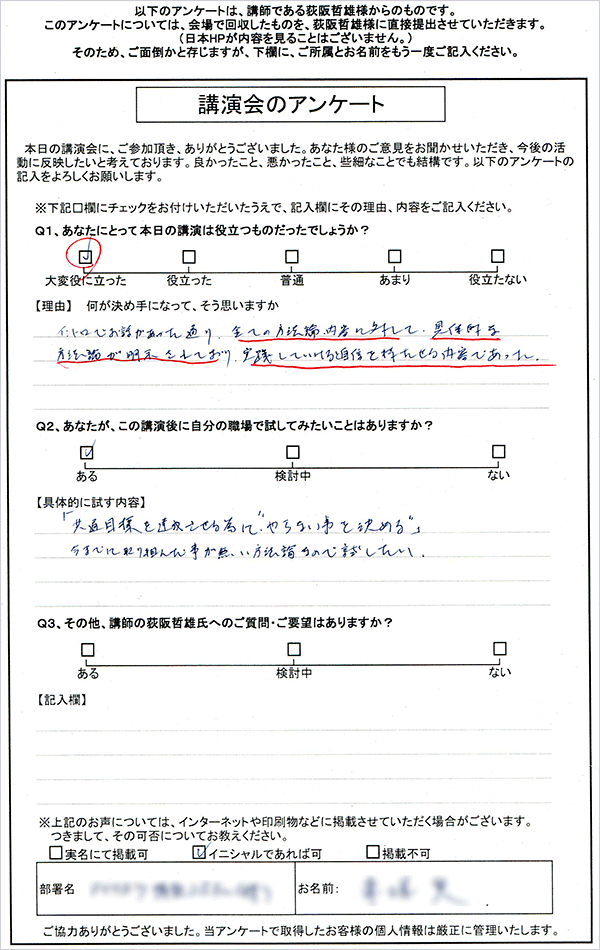 以下のアンケートは、講師である荻阪哲雄様からのものです。
このアンケートについては、会場で回収したものを、荻阪哲雄様に直接提出させていただきます。
（日本HPが内容を見ることはございません。）
そのため、ご面倒かと存じますが、下欄に、ご所属とお名前をもう一度ご記入ください。
講演会のアンケート
本日の講演会に、ご参加頂き、ありがとうございました。あなた様のご意見をお聞かせいただき、今後の活
動に反映したいと考えております。良かったこと、悪かったこと、些細なことでも結構です。以下のアンケートの
記入をよろしくお願いします。
※下記口欄にチェックをお付けいただいたうえで、記入欄にその理由、内容をご記入ください。
Q1、あなたにとって本日の講演は役立つものだったでしょうか？
大変役に立った 役立った 普通 あまり 役立たない
【理由】 何が決め手になって、そう思いますか
イントロでお話があった通り、全ての方法論、内容に対して、具体的な
方法論が明示されており、実践していける自信を持たせる内容であった。
Q2、あなたが、この講演後に自分の職場で試してみたいことはありますか？
ある 検討中 ない
【具体的に試す内容】
「共通目標を達成させる為に"やらない事を決める"」
今までに取り組んだ事が無い方法論なので試したい。
Q3、その他、講師の荻阪哲雄氏へのご質問・ご要望はありますか？
ある 検討中 ない
【記入欄】
※上記のお声については、インターネットや印刷物などに掲載させていただく場合がございます。
つきまして、その可否についてお教えください。
実名にて掲載可 イニシャルであれば可 掲載不可
部署名 お名前：
ご協力ありがとうございました。当アンケートで取得したお客様の個人情報は厳正に管理いたします。